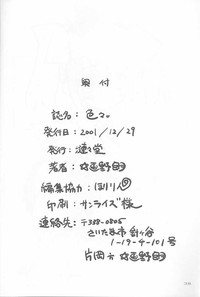 奥付
誌名：色々。
発行日：2001/12/29
発行：漣々堂
著者：
編集協力：ほりりん
印刷：サンライズ様
連絡先：〒338-0805
さいたま市針ヶ谷
1-19-4-101号
片岡方